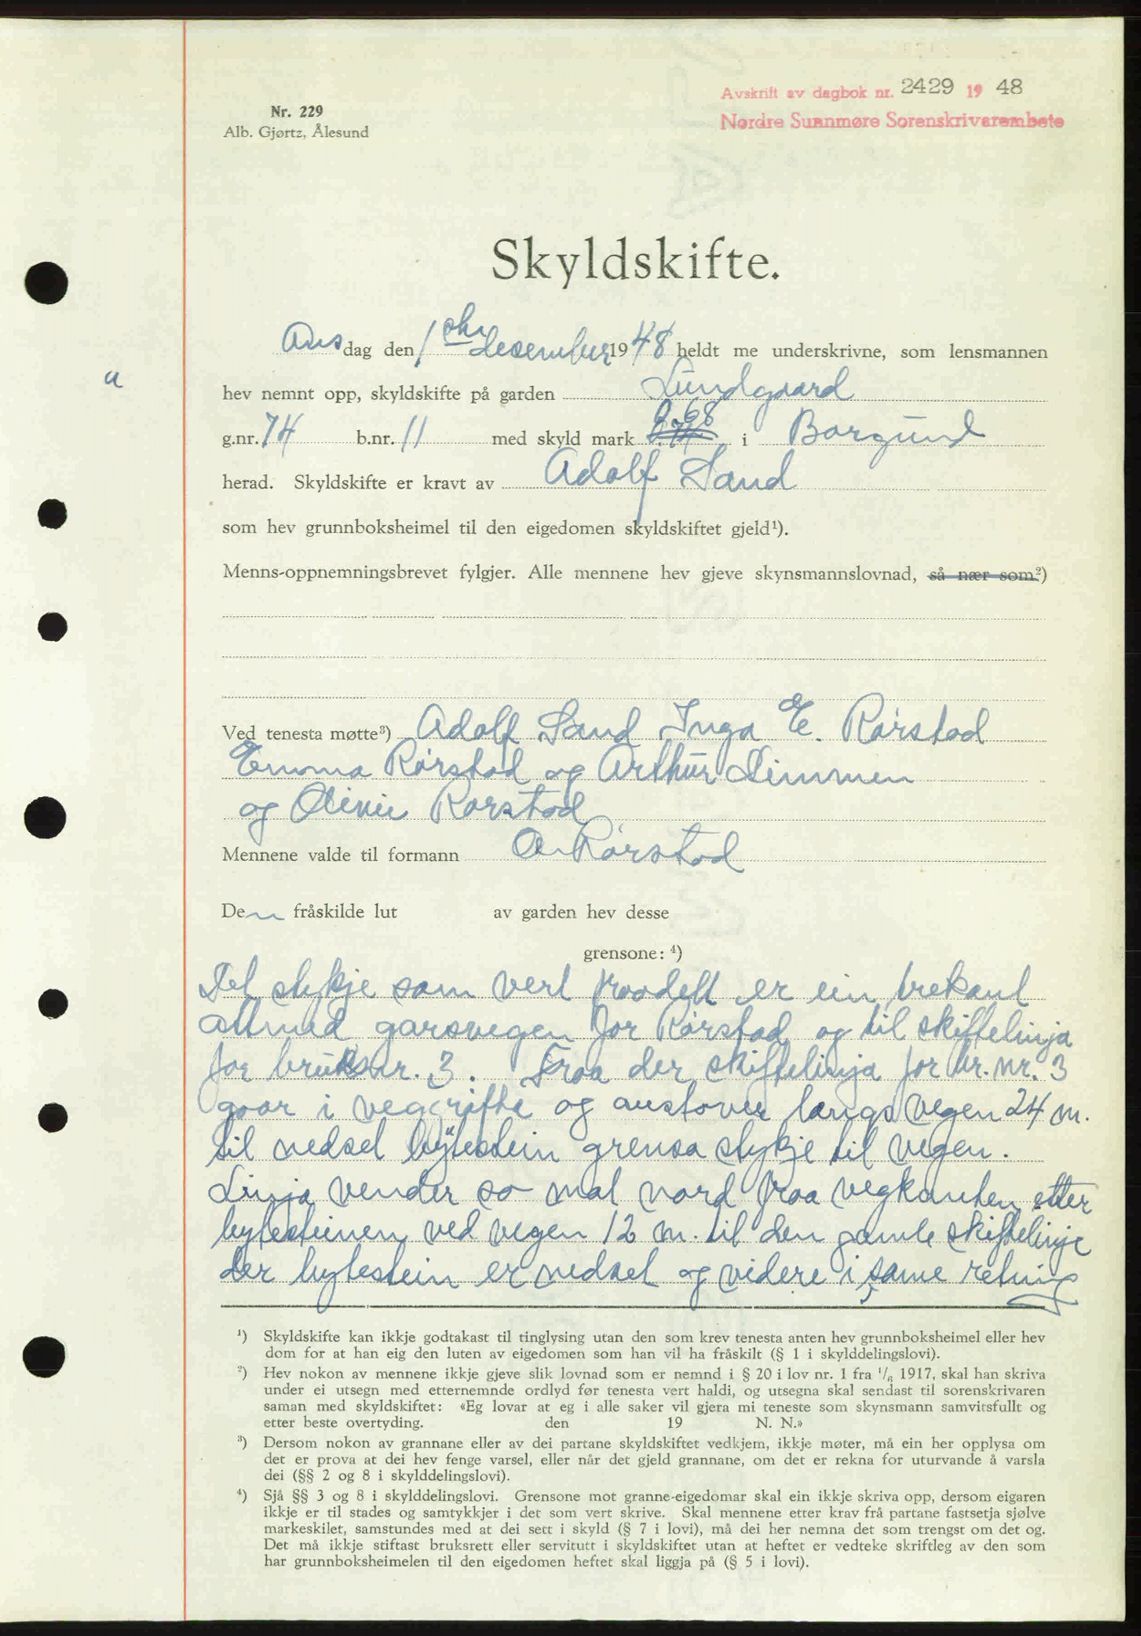 Avskrift av dagbok nr. 2429 19 48
Nordre Sunnmøre Sorenskrivarembete
Nr. 229
Alb. Gjørtz, Ålesund
Skyldskifte.
Ons dag den 1ste desember 1948 heldt me underskrivne, som lensmannen
hev nemnt opp, skyldskifte på garden Lundgaard
g.nr. 74 b.nr. 11 med skyld mark 0.68 i Borgund
herad. Skyldskifte er kravt av Adolf Sand
som hev grunnboksheimel til den eigedomen skyldskiftet gjeld¹).
Menns-oppnemningsbrevet fylgjer. Alle mennene hev gjeve skynsmannslovnad, så nær som²)
Ved tenesta møtte³) Adolf Sand Inga E. Rørstad
Emma Rørstad og Arthur Dimmen
og Rørstad
Mennene valde til formann O Rørstad
Den fråskilde lut av garden hev desse
grensone: ⁴)
Det stykje som vert fraadelt er ein trekant
attmed garsvegen for Rørstad og til skiftelinja
for bruksnr. 3. Fraa der skiftelinja for br. nr. 3
gaar i veggrifte og austover langs vegen 24 m.
til nedset bytestein grensa stykje til vegen.
Linja vender so mot nord fraa vegkanten etter
bytesteinen ved vegen 12 m. til den gamle skiftelinje
der bytestein er nedset og videre i same retning
¹) Skyldskifte kan ikkje godtakast til tinglysing utan den som krev tenesta anten hev grunnboksheimel eller hev
dom for at han eig den luten av eigedomen som han vil ha fråskilt (§ 1 i skylddelingslovi).
²) Hev nokon av mennene ikkje gjeve slik lovnad som er nemnd i § 20 i lov nr. 1 fra ¹/₈ 1917, skal han skriva
under ei utsegn med etternemnde ordlyd før tenesta vert haldi, og utsegna skal sendast til sorenskrivaren
saman med skyldskiftet: «Eg lovar at eg i alle saker vil gjera mi teneste som skynsmann samvitsfullt og
etter beste overtyding. den 19 N. N.»
³) Dersom nokon av grannane eller av dei partane skyldskiftet vedkjem, ikkje møter, må ein her opplysa om
det er prova at dei hev fenge varsel, eller når det gjeld grannane, om det er rekna for uturvande å varsla
dei (§§ 2 og 8 i skylddelingslovi).
⁴) Sjå §§ 3 og 8 i skylddelingslovi. Grensone mot granne-eigedomar skal ein ikkje skriva opp, dersom eigaren
ikkje er til stades og samtykkjer i det som vert skrive. Skal mennene etter krav frå partane fastsetja sjølve
markeskilet, samstundes med at dei sett i skyld (§ 7 i lovi), må dei her nemna det som trengst om det og.
Det må ikkje stiftast bruksrett eller servitutt i skyldskiftet utan at heftet er vedteke skriftleg av den som
har grunnboksheimelen til den eigedomen heftet skal liggja på (§ 5 i lovi).